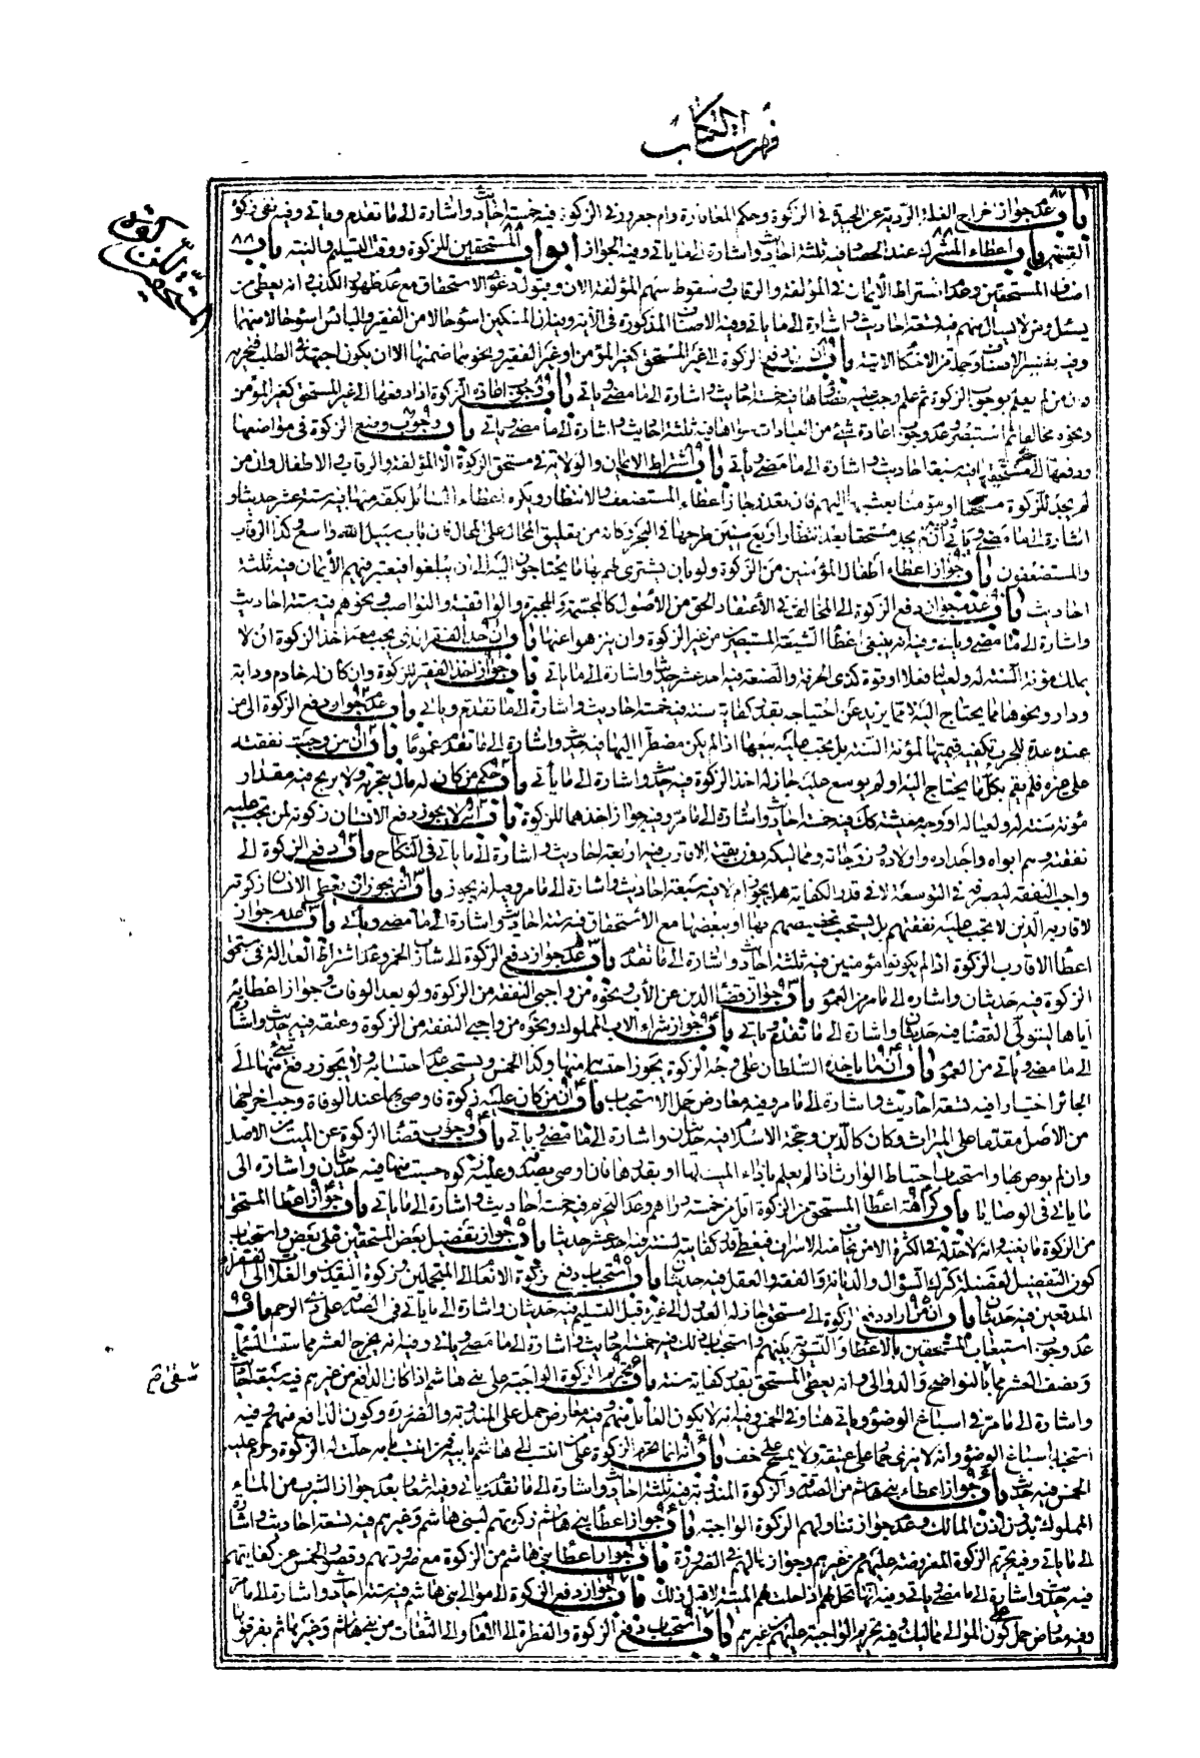 فهرست الكتاب
باب عدم جواز اخراج الغلة الردية عن الجيدة في الزكوة وحكم المعافارة وام جعرور في الزكوة فيه خمسة احاديث واشارة الى ما تقدم وياتي وفيه نفى زكوة
باب اعطاء المشرك عند الحصاد فيه ثلثة احاديث واشارة الى ما ياتي وفيه الجواز ابواب المستحقين للزكوة ووقت التسليم والنية باب
اصناف المستحقين وعدم اشتراط الأيمان في المؤلفة والرقاب وسقوط سهم المؤلفة الان وقبول دعوى الاستحقاق مع عدم ظهور الكذب في انه يعطى من
يسئل ومن لا يسال منهم فيه تسعة احاديث واشارة الى ما ياتي وفيه الاصناف المذكورة في الاية وبيان ان المسكين اسوء حالا من الفقير والبائس اسوء حالا منهما
وفيه تفسير الاصناف وجملة من الاحكام الاتية باب ان من دفع الزكوة الى غير المستحق كغير المؤمن او غير الفقير ونحوهما ضمنها الا ان يكون اجتهد في الطلب فتجزيه
وان من لم يعلم بوجوب الزكوة ثم علم وجب عليه قضاها فيه خمسة احاديث واشارة الى ما مضى وياتي باب وجوب اعادة الزكوة اذا دفعها الى غير المستحق كغير المؤمن
ونحوه مخالفا ثم استبصر وعدم وجوب اعادة شئ من العبادات سواها فيه ثلثة احاديث واشارة الى ما مضى وياتي باب وجوب وضع الزكوة في مواضعها
ودفعها الى مستحقها فيه سبعة احاديث واشارة الى ما مضى وياتي باب اشتراط الايمان والولاية في مستحق الزكوة الا المؤلفة والرقاب والاطفال وان من
لم يجد للزكوة مستحقا او مؤمنا يبعث بها اليهم فان تعذر جاز اعطاء المستضعف والانتظار ويكره اعطاء السائل بكفه منها فيه ستة عشر حديثا و
اشارة الى ما مضى وياتي وان لم يجد مستحقا بعد انتظار اربع سنين طرحها في البحر وكانه من تعليق المحال على المحال فان باب سبيل الله واسع وكذا الرقاب
والمستضعفون باب جواز اعطاء اطفال المؤمنين من الزكوة ولو بان يشترى لهم بها ما يحتاجون اليه الى ان يبلغوا فيعتبر فيهم الأيمان فيه ثلثة
احاديث باب عدم جواز دفع الزكوة الى المخالف في الأعتقاد الحق من الأصول كالمجسمة والمجبرة والواقفية والنواصب ونحوهم فيه ستة احاديث
واشارة الى ما مضى وياتي وفيه انه ينبغي اعطاء الشيعة المستبصرين من غير الزكوة وان ينزهوا عنها باب ان حد الفقر الذي يجب معه اخذ الزكوة ان لا
يملك مؤنة السنة له ولعياله فعلا او قوة كذى الحرفة والصنعة فيه احد عشر حديثا واشارة الى ما ياتي باب جواز اخذ الفقير للزكوة وان كان له خادم ودابة
ودار ونحوها مما يحتاج اليه لا مما يزيد عن احتياجه بقدر كفاية سنة فيه خمسة احاديث واشارة الى ما تقدم وياتي باب عدم جواز دفع الزكوة الى من
عنده عدة للحرب تكفيه قيمتها لمؤنة السنة بل يجب عليه بيعها اذا لم يكن مضطرا اليها فيه حديث واشارة الى ما تقدم عموما باب ان من وجبت نفقته
على غيره فلم يقم بكل ما يحتاج اليه او لم يوسع عليه جاز له اخذ الزكوة فيه حديث واشارة الى ما ياتي باب حكم من كان له مال يتجر به ولا يربح فيه مقدار
مؤنة سنته له ولعياله او وجه معيشة كذلك فيه خمسة احاديث واشارة الى ما مر وفيه جواز اخذهما للزكوة باب انه لا يجوز دفع الانسان زكوته لمن تجب عليه
نفقته وهم ابواه واجداده واولاده وزوجاته ومماليكه دون بقية الاقارب فيه اربعة احاديث واشارة الى ما ياتي في النكاح باب دفع الزكوة الى
واجب النفقة ليصرفه في التوسعة لا في قدر الكفاية هل يجوز ام لا فيه سبعة احاديث واشارة الى ما مر وفيه انه يجوز باب انه يجوز ان يعطى الانسان زكوته
لاقاربه الذين لا يجب عليه نفقتهم بل يستحب تخصيصهم بها او ببعضها مع الأستحقاق فيه ستة احاديث واشارة الى ما مضى وياتي باب عدم جواز
اعطاء الاقارب الزكوة اذا لم يكونوا مؤمنين فيه ثلثة احاديث واشارة الى ما تقدم باب عدم جواز دفع الزكوة الى شارب الخمر وعدم اشتراط العدالة في مستحق
الزكوة فيه حديثان واشارة الى ما مر من العموم باب جواز قضاء الدين عن الأب ونحوه من واجبي النفقة من الزكوة ولو بعد الوفات وجواز اعطائه
اياها ليتولى القضاء فيه حديثان واشارة الى ما تقدم وياتي باب جواز شراء الاب المملوك ونحوه من واجبي النفقة من الزكوة وعتقه فيه حديث واشارة
الى ما مضى وياتي من العموم باب ان ما ياخذه السلطان على وجه الزكوة يجوز احتسابه منها وكذا الخمس ويستحب عدم احتسابه ولا يجوز دفع شئ منها الى
الجائر اختيارا فيه تسعة احاديث واشارة الى ما مر وفيه معارض حمل الاستحباب باب ان من كان عليه زكوة فاوصى بها عند الوفاة وجب اخراجها
من الأصل مقدما على الميراث وكان كالدين وحجة الاسلام فيه حديثان واشارة الى ما مضى وياتي باب وجوب قضاء الزكوة عن الميت من الاصل
وان لم يوص بها واستحباب احتياط الوارث اذا لم يعلم باداء الميت لها او بقدرها فان اوصى بصدقة وعليه زكوة حسبت منها فيه حديثان واشارة الى
ما ياتي في الوصايا باب كراهة اعطاء المستحق من الزكوة اقل من خمسة دراهم وعدم التحريم فيه خمسة احاديث واشارة الى ما ياتي باب جواز اعطاء المستحق
من الزكوة ما يغنيه وانه لا حد له في الكثرة الا من يخاف منه الاسراف فيعطى قدر كفايته لسنة فيه احد عشر حديثا باب جواز تفضيل بعض المستحقين على بعض واستحباب
كون التفضيل لفضيلة كترك السؤال والديانة والفقه والعقل فيه حديثان باب استحباب دفع زكوة الانعام الى المتجملين وزكوة النقدين والغلات الى الفقراء
المدقعين فيه حديثان باب ان من اراد دفع زكوة الى مستحق جاز له العدول الى غيره قبل التسليم فيه حديثان واشارة الى ما ياتي في الصدقة على ذي الرحم باب
عدم وجوب استيعاب المستحقين بالاعطاء والتسوية بينهم واستحباب ذلك فيه خمسة احاديث واشارة الى ما مضى وياتي وفيه انه يخرج العشر مما سقت السماء
ونصف العشر مما بالنواضح والدوالي وانه يعطى المستحق بقدر كفايته سنة باب تحريم الزكوة الواجبة على بني هاشم اذا كان الدافع من غيرهم فيه سبعة احاديث
واشارة الى ما مر في اسباغ الوضوء وياتي هنا وفي الخمس وفيه انه لا يكون العامل منهم وفيه معارض حمل على المندوبة والضرورة وكون الدافع منهم وفيه
استحباب اسباغ الوضوء وانه لا ينزى حمار على عتيقة ولا يمسح على خف باب انه انما تحرم الزكوة على من انتسب الى هاشم بابيه فمن انتسب بامه حلت له الزكوة وحرم عليه
الخمس فيه حديث باب جواز اعطاء بني هاشم من الصدقة والزكوة المندوبة فيه ثلثة احاديث واشارة الى ما تقدم وياتي وفيه اشعار بعدم جواز الشرب من الماء
المملوك بدون اذن المالك وعدم جواز تناولهم الزكوة الواجبة باب جواز اعطاء بني هاشم زكوتهم لبني هاشم وغيرهم فيه تسعة احاديث واشارة
الى ما ياتي وفيه تحريم الزكوة المفروضة عليهم من غيرهم وجواز نالهم في الضرورة باب جواز اعطاء بني هاشم من الزكوة مع ضرورتهم وقصور الخمس عن كفايتهم
فيه حديث واشارة الى ما مضى وياتي وفيه انها تحل لهم اذا حلت لهم الميتة لا قبل ذلك باب جواز دفع الزكوة الى موالي بني هاشم فيه ستة احاديث واشارة الى ما مر
وفيه معارض حمل على كون الموالي مماليك وفيه تحريم الواجبة عليهم من غيرهم باب استحباب دفع الزكوة والفطرة الى الفقهاء والى الثقات من بني هاشم وغيرهم ثم يفرقونها